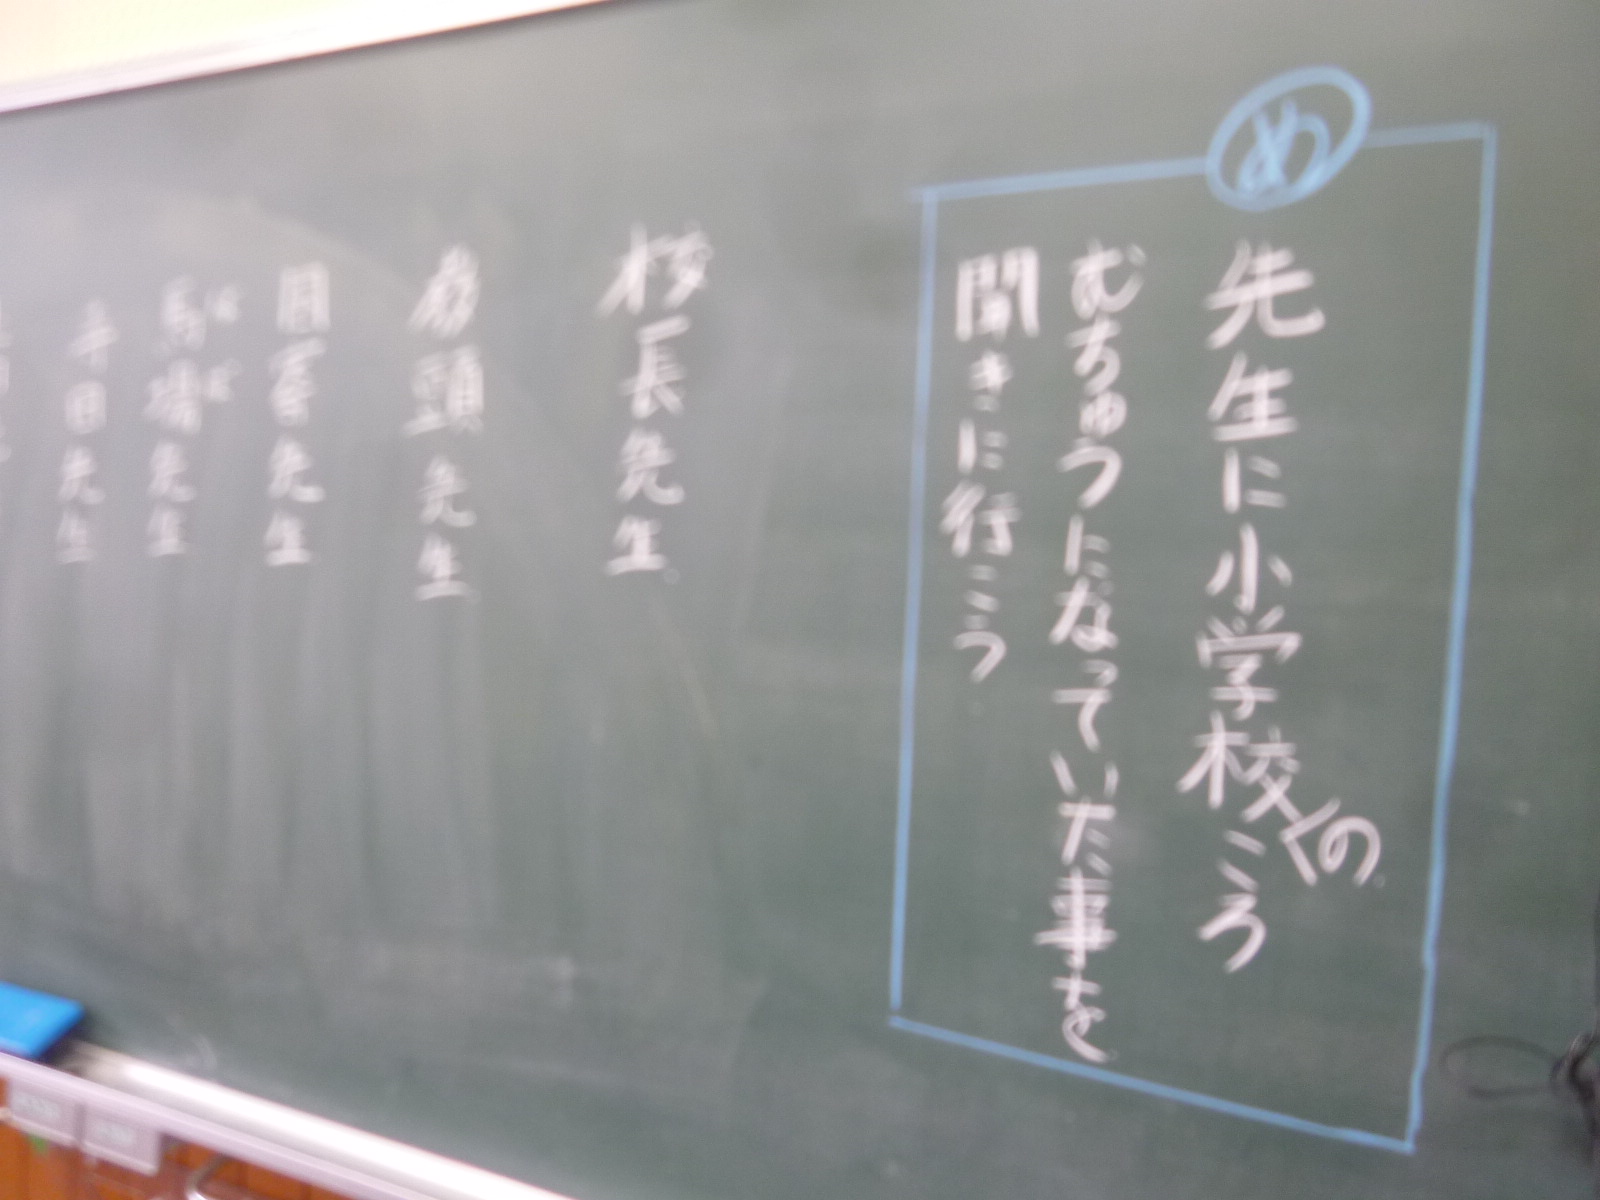 め
先生に小学校のころ
むちゅうになっていた事を
聞きに行こう
校長先生
教頭先生
先生
ばば
馬場先生
寺田先生